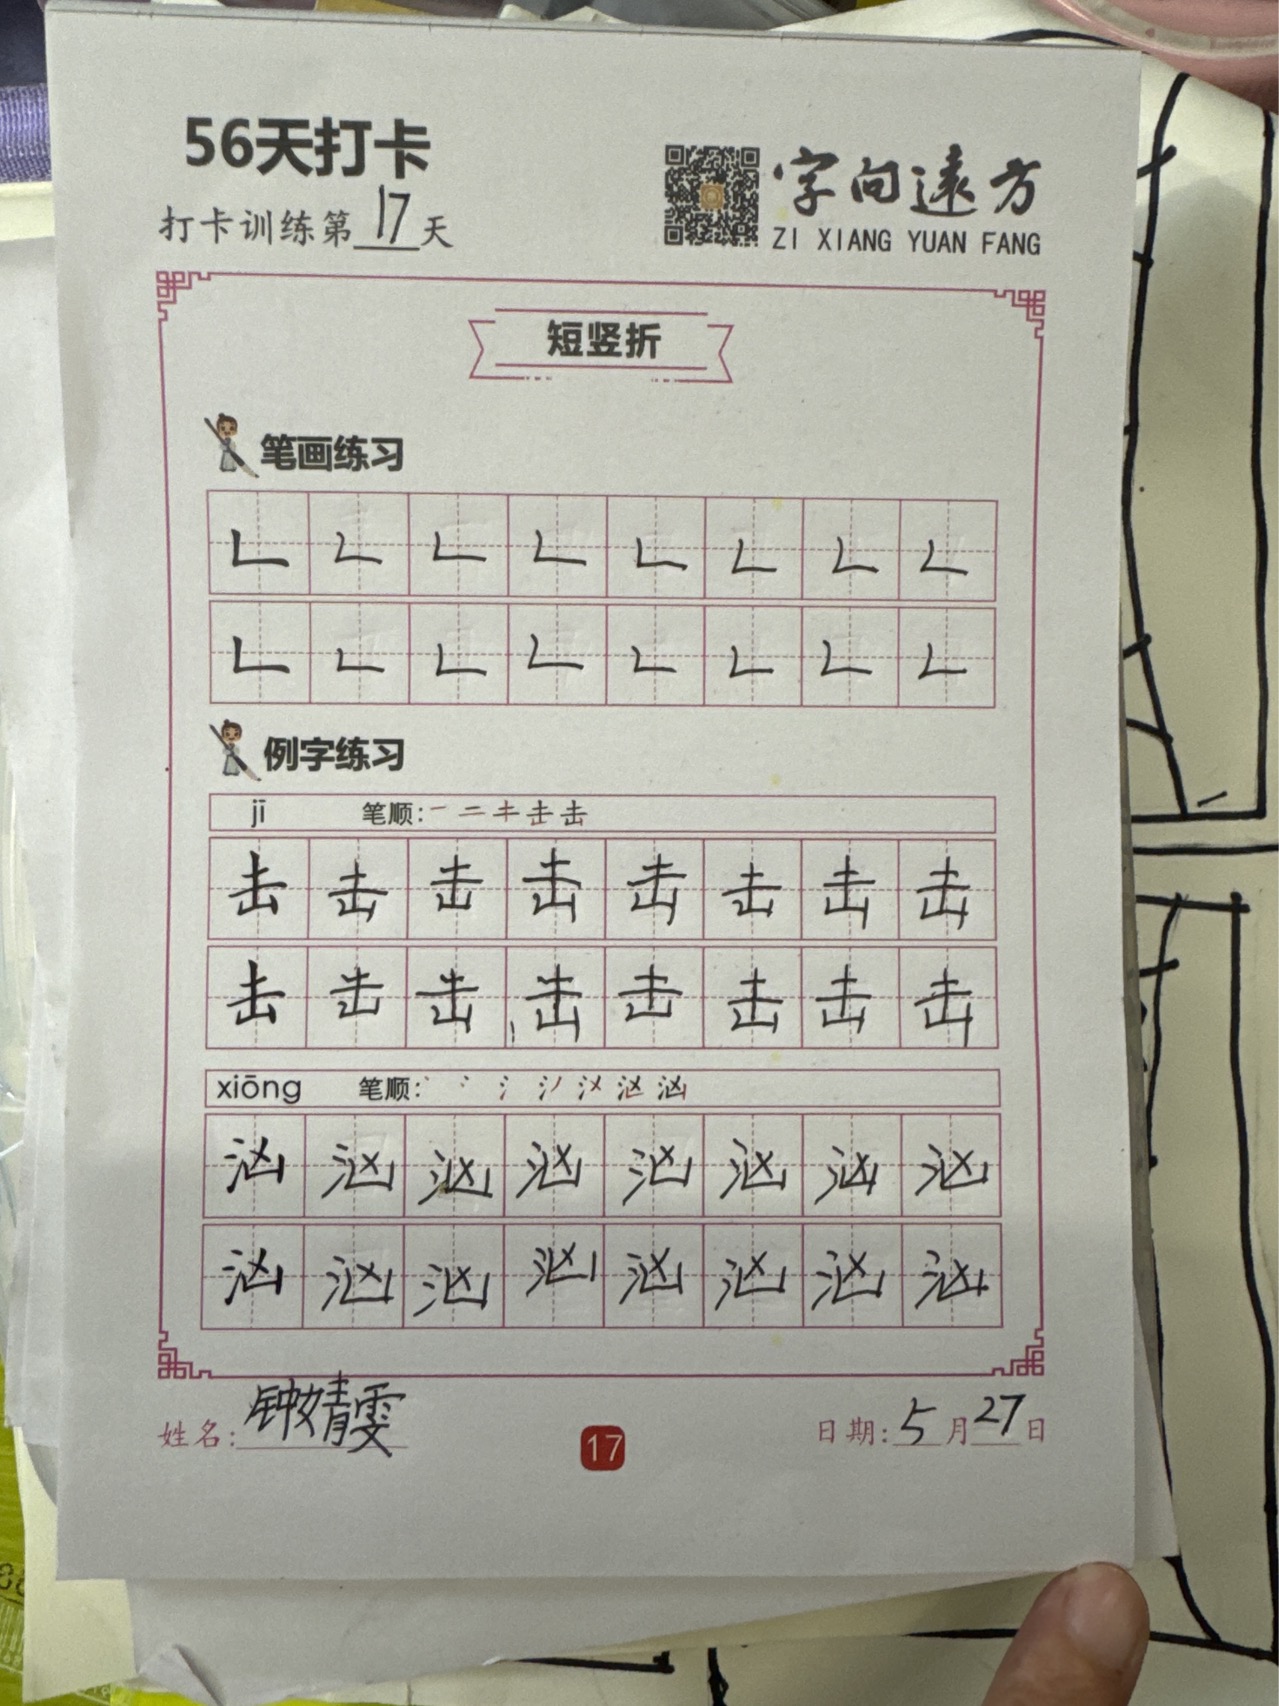 56天打卡
打卡训练第17天
字向遠方
ZI XIANG YUAN FANG
短竖折
笔画练习
𠃊 𠃊 𠃊 𠃊 𠃊 𠃊 𠃊 𠃊
𠃊 𠃊 𠃊 𠃊 𠃊 𠃊 𠃊 𠃊
例字练习
jī 笔顺:
击 击 击 击 击 击 击 击
击 击 击 击 击 击 击 击
xiōng 笔顺:
汹 汹 汹 汹 汹 汹 汹 汹
汹 汹 汹 汹 汹 汹 汹 汹
姓名:钟婧雯
17
日期:5月27日